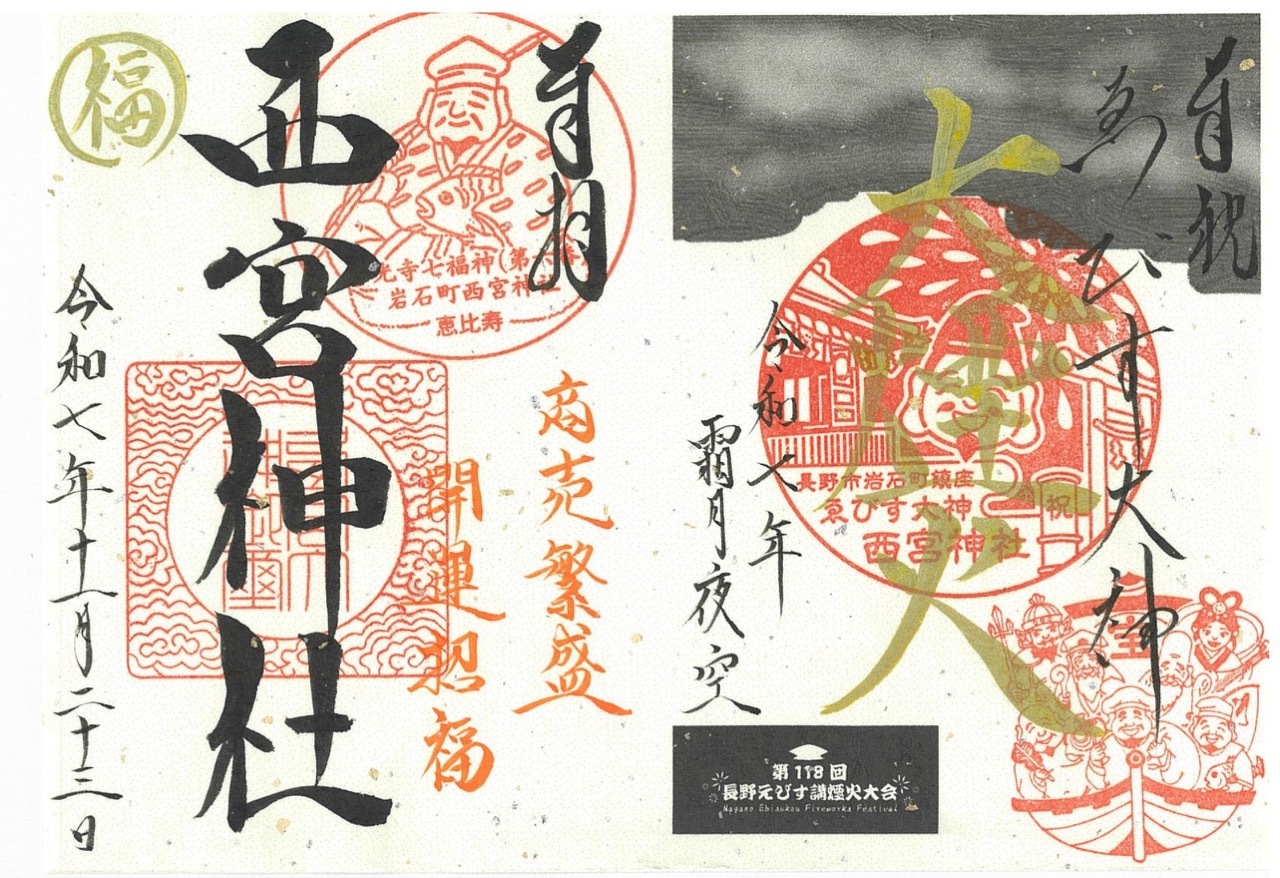 奉祝
ゑびす大神
大煙火
令和七年
霜月夜空
長野市岩石町鎮座
ゑびす大神
祝
西宮神社
宝
第118回
長野えびす講煙火大会
Nagano Ebisukou Fireworks Festival
奉拝
光寺七福神(第六番
岩石町西宮神社
恵比寿
商売繁盛
開運招福
西宮神社
福
令和七年十一月二十三日